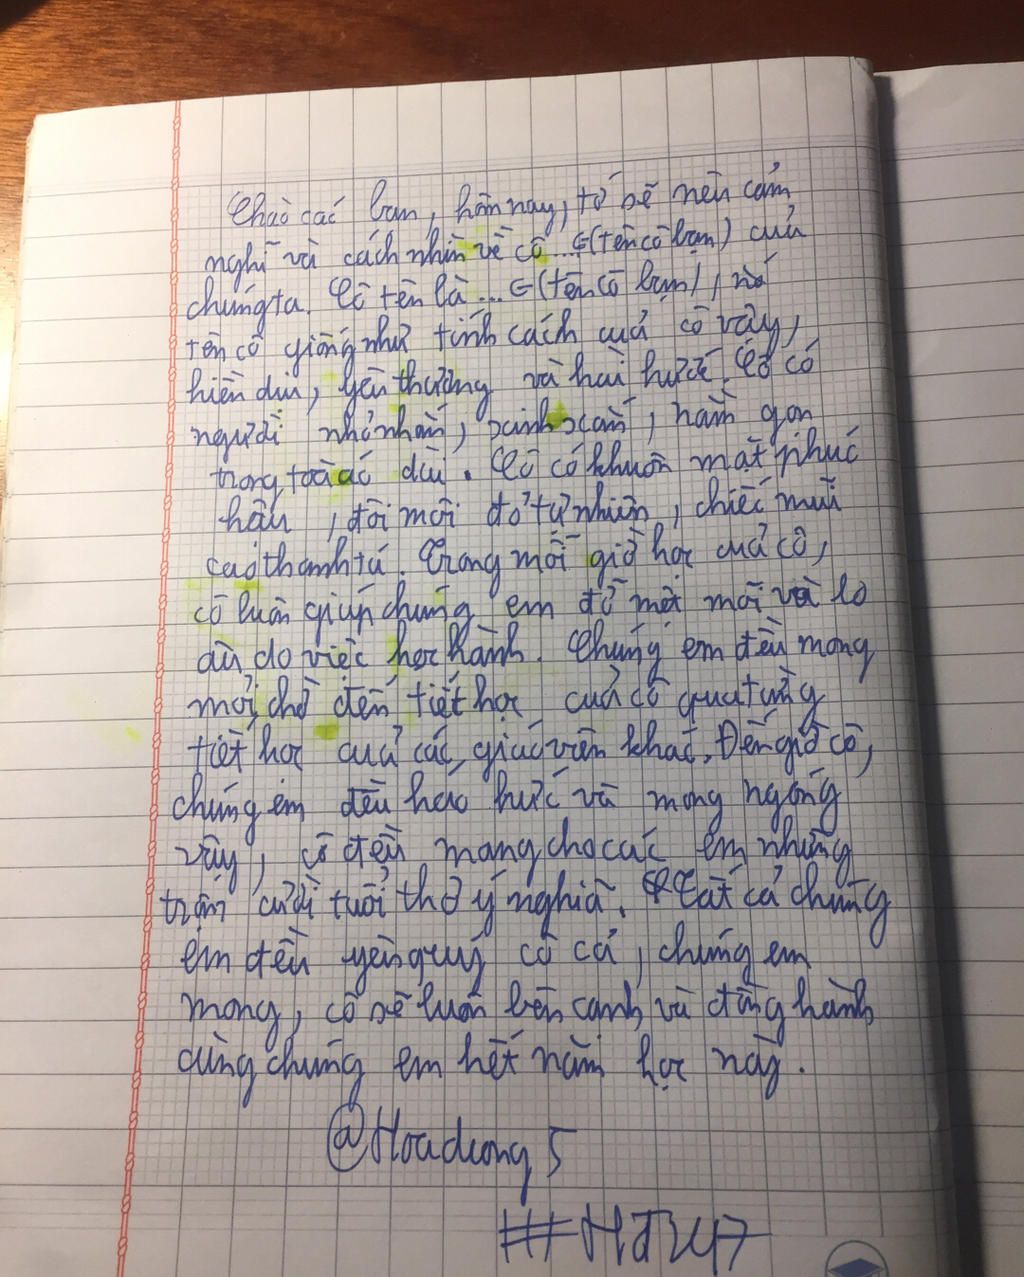 Chào các bạn, hôm nay, tớ sẽ nêu cảm
nghĩ và cách nhìn về cô ... ∈ (tên cô bạn) của
chúng ta. Cô tên là ... ∈ (tên cô bạn), nó
tên cô giống như tính cách của cô vậy,
hiền dịu, yêu thương và hài hước. Cô có
người nhỏ nhắn, xinh xắn, nằm gọn
trong toà áo dài. Cô có khuôn mặt phúc
hậu, đôi môi đỏ tự nhiên, chiếc mũi
cao thanh tú. Trong mỗi giờ học của cô,
cô luôn giúp chúng em đỡ mệt mỏi và lo
âu do việc học hành. Chúng em đều mong
mỏi chờ đến tiết học của cô qua từng
tiết học của các giáo viên khác. Đến giờ cô,
chúng em đều háo hức và mong ngóng
vậy, cô đều mang cho các em những
trận cười tuổi thơ ý nghĩa. Tất cả chúng
em đều yêu quý cô cả, chúng em
mong, cô sẽ luôn bên cạnh và đồng hành
cùng chúng em hết năm học này.
@Hoaduong5